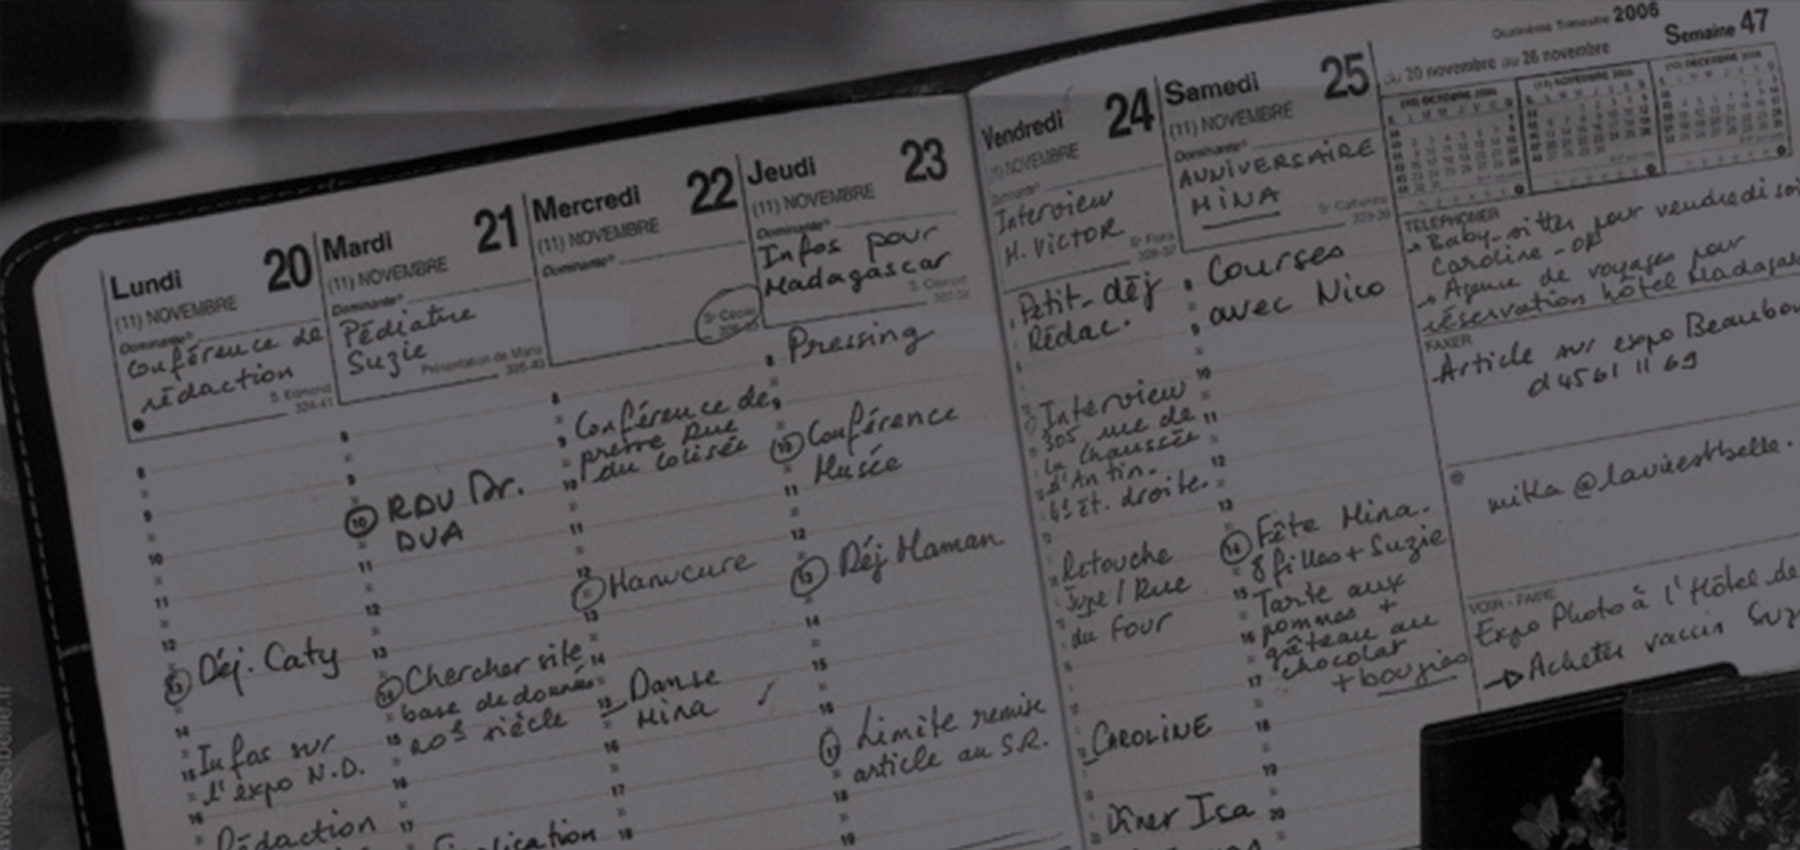 Quatrième Trimestre 2006
du 20 novembre au 26 novembre
Semaine 47
Lundi 20
(11) NOVEMBRE
Dominante
Conférence de
rédaction
S. Edmond
324-41
8
9
10
11
12
13 Déj. Caty
14
15 Infos sur
l'expo N.D.
16
Rédaction
Mardi 21
(11) NOVEMBRE
Dominante
Pédiatre
Suzie
Présentation de Marie
325-40
8
9
10 RDV Dr.
DUA
11
12
13
14 Chercher site
base de données
15 20e siècle
16
17
Mercredi 22
(11) NOVEMBRE
Dominante
Ste Cécile
8
9 Conférence de
presse Rue
du Colisée
10
11
12 Manucure
13
14
15 Danse
Mina
16
17
18
Jeudi 23
(11) NOVEMBRE
Dominante
Infos pour
Madagascar
S. Clément
8 Pressing
9
10 Conférence
Musée
11
12
13 Déj Maman
14
15
16
17 Limite remise
article au S.R.
18
19
Vendredi 24
(11) NOVEMBRE
Dominante
Interview
H. VICTOR
Ste Flora
Petit-déj
Rédac.
Interview
305 rue de
la Chaussée
d'Antin.
ét. droite.
Retouche
Jupe / Rue
du Four
CAROLINE
Dîner Isa
Samedi 25
(11) NOVEMBRE
Dominante
ANNIVERSAIRE
MINA
Ste Catherine
329-36
8 Courses
9 avec Nico
10
11
12
13
14 Fête Mina.
8 filles + Suzie
15 Tarte aux
pommes +
16 gâteau au
chocolat
17 + bougies
18
19
20
(10) OCTOBRE 2006
(11) NOVEMBRE 2006
(12) DECEMBRE 2006
TELEPHONER
→ Baby-sitter pour vendredi soi
Caroline - OK
→ Agence de voyages pour
réservation hôtel Madagas
FAXER
Article sur expo Beaubou
01 45 61 11 69
@
mika@lavieestbelle.
VOIR - FAIRE
Expo Photo à l'Hôtel de
→ Acheter vaccin Suz